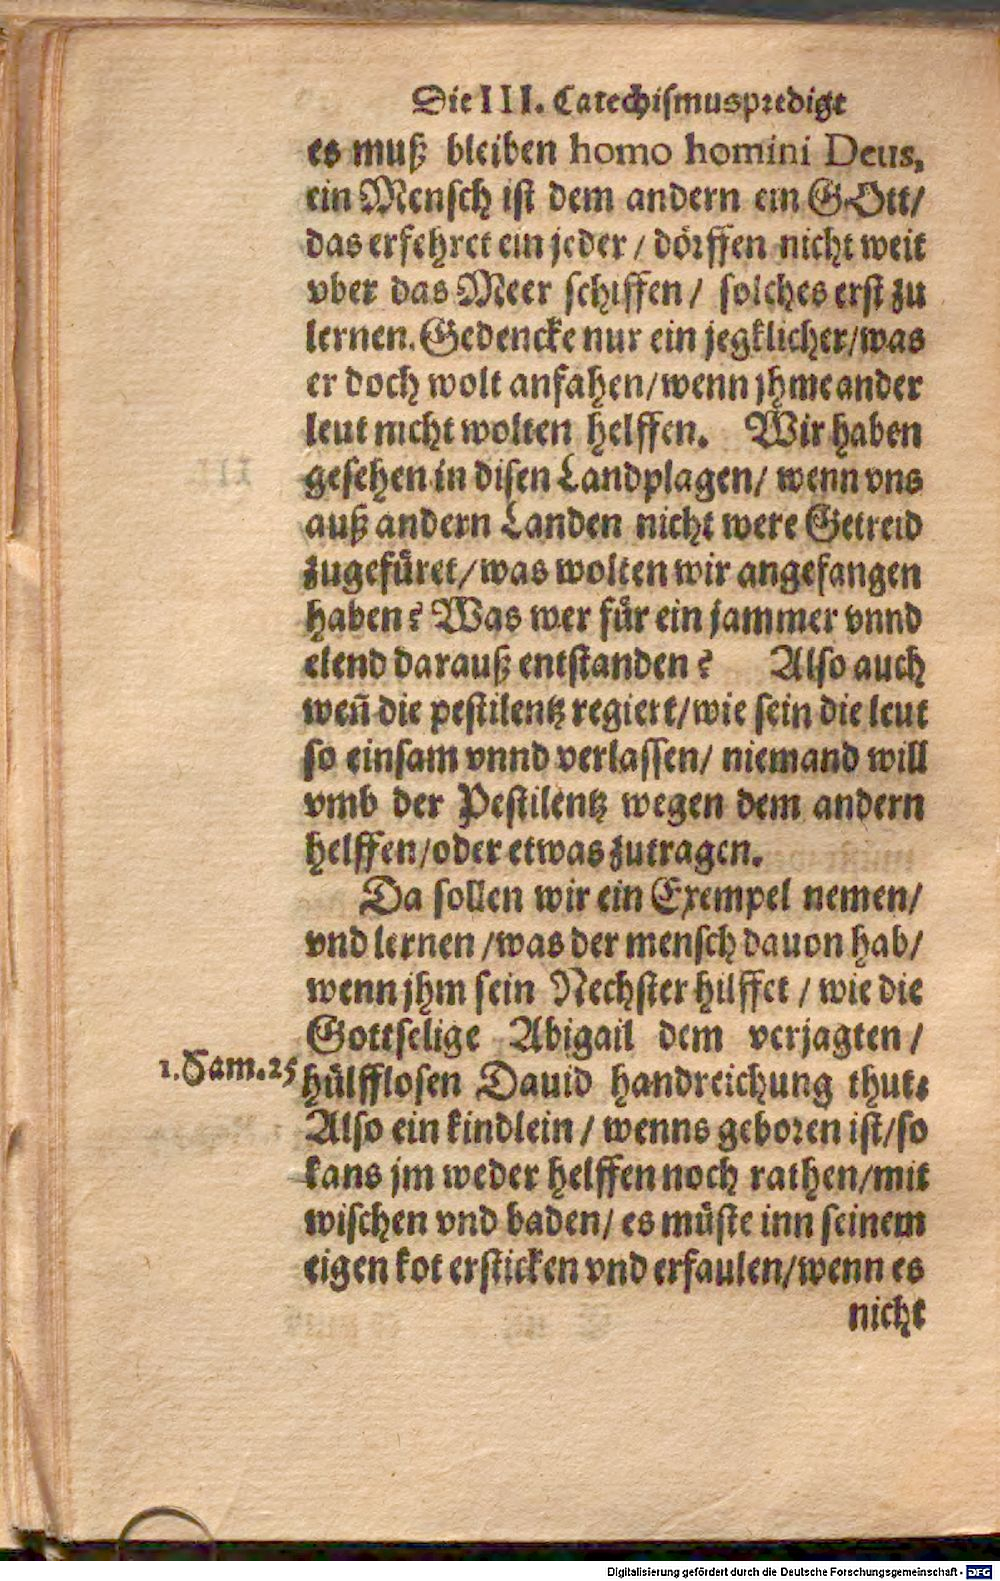 Die III. Catechismuspredigt
es muß bleiben homo homini Deus,
ein Mensch ist dem andern ein GOtt/
das erfehret ein jeder / dörffen nicht weit
vber das Meer schiffen / solches erst zu
lernen. Gedencke nur ein jegklicher/was
er doch wolt anfahen/wenn jhme ander
leut nicht wolten helffen. Wir haben
gesehen in disen Landplagen/ wenn vns
auß andern Landen nicht were Getreid
zugefüret/was wolten wir angefangen
haben? Was wer für ein jammer vnnd
elend darauß entstanden? Also auch
weñ die pestilentz regiert/wie sein die leut
so einsam vnnd verlassen/ niemand will
vmb der Pestilentz wegen dem andern
helffen/oder etwas zutragen.
Da sollen wir ein Exempel nemen/
vnd lernen /was der mensch dauon hab/
wenn jhm sein Nechster hilffet / wie die
Gottselige Abigail dem verjagten /
1. Sam. 25
hülfflosen Dauid handreichung thut:
Also ein kindlein / wenns geboren ist/so
kans jm weder helffen noch rathen/mit
wischen vnd baden/ es müste inn seinem
eigen kot ersticken vnd erfaulen/wenn es
nicht
Digitalisierung gefördert durch die Deutsche Forschungsgemeinschaft - DFG